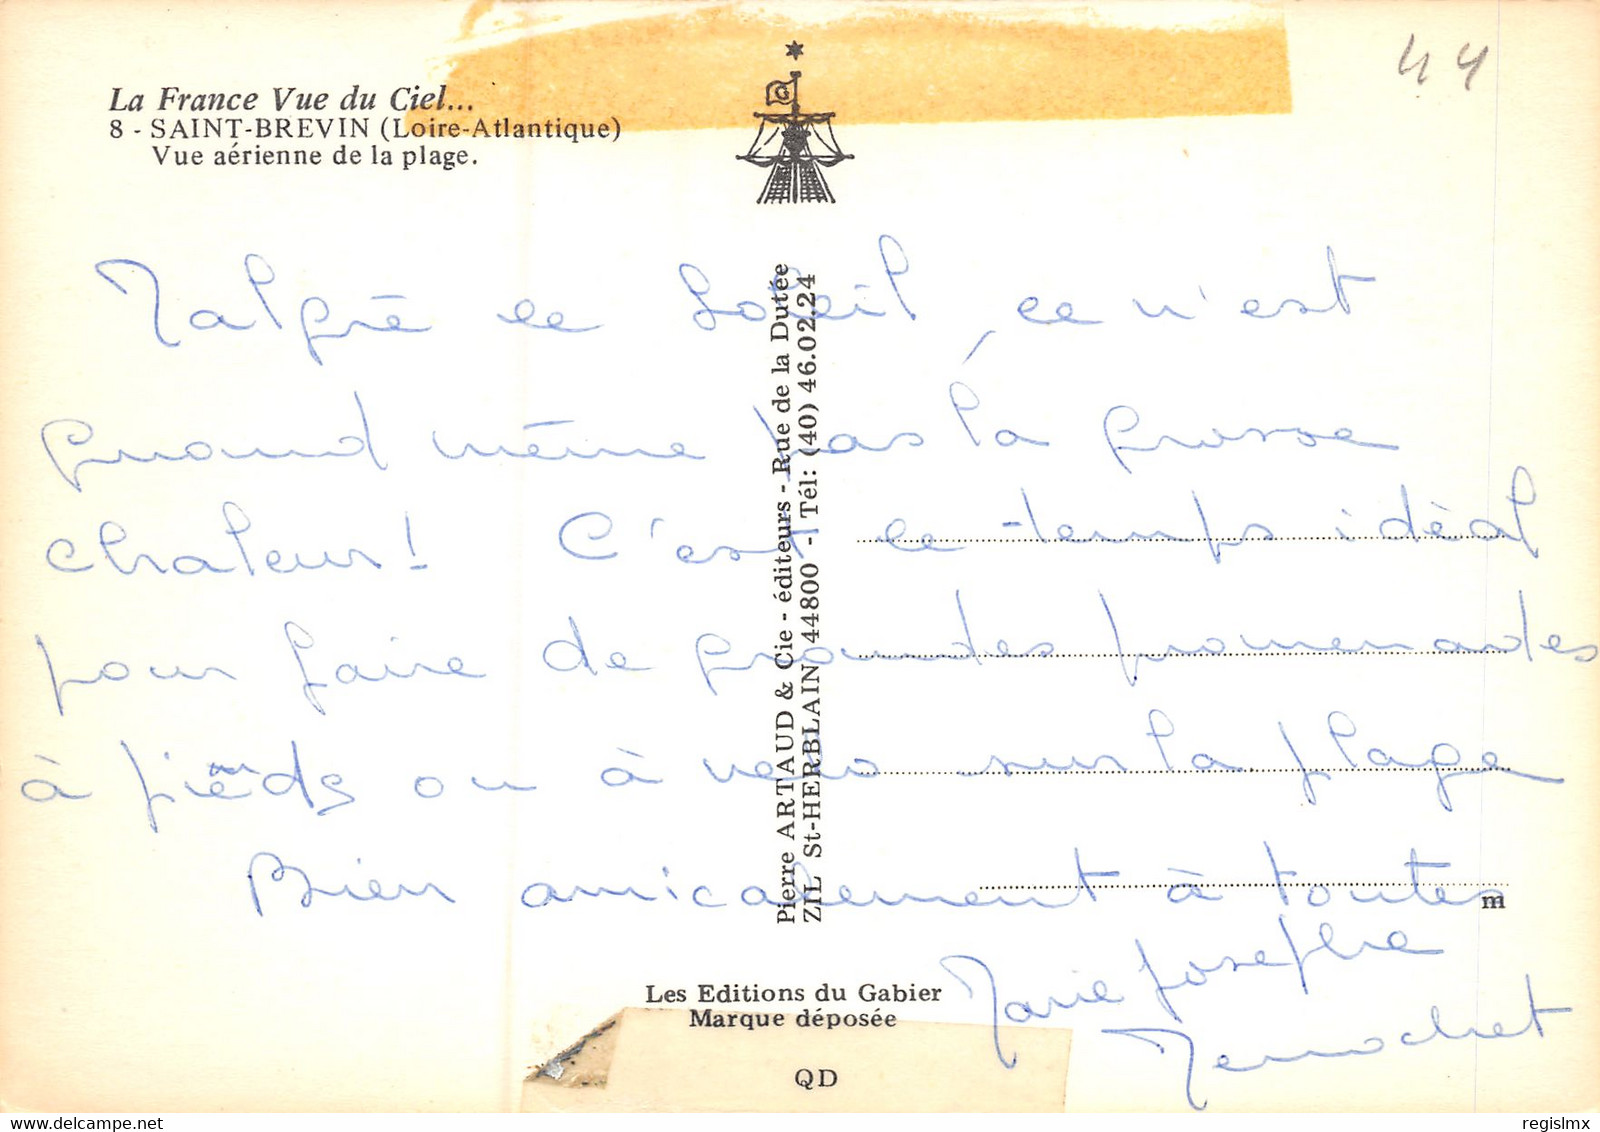 44
La France Vue du Ciel...
8 - SAINT-BREVIN (Loire-Atlantique)
Vue aérienne de la plage.
G
Malgré ce Soleil, ce n'est
quand même pas la grosse
chaleur! C'est ce temps idéal
pour faire de grandes promenades
à pieds ou à vélo sur la plage
Bien amicalement à toutes
Marie Josephe
Pierre ARTAUD & Cie - éditeurs - Rue de la Dutée
ZIL St-HERBLAIN 44800 - Tél: (40) 46.02.24
m
Les Editions du Gabier
Marque déposée
QD
delcampe.net
regislmx